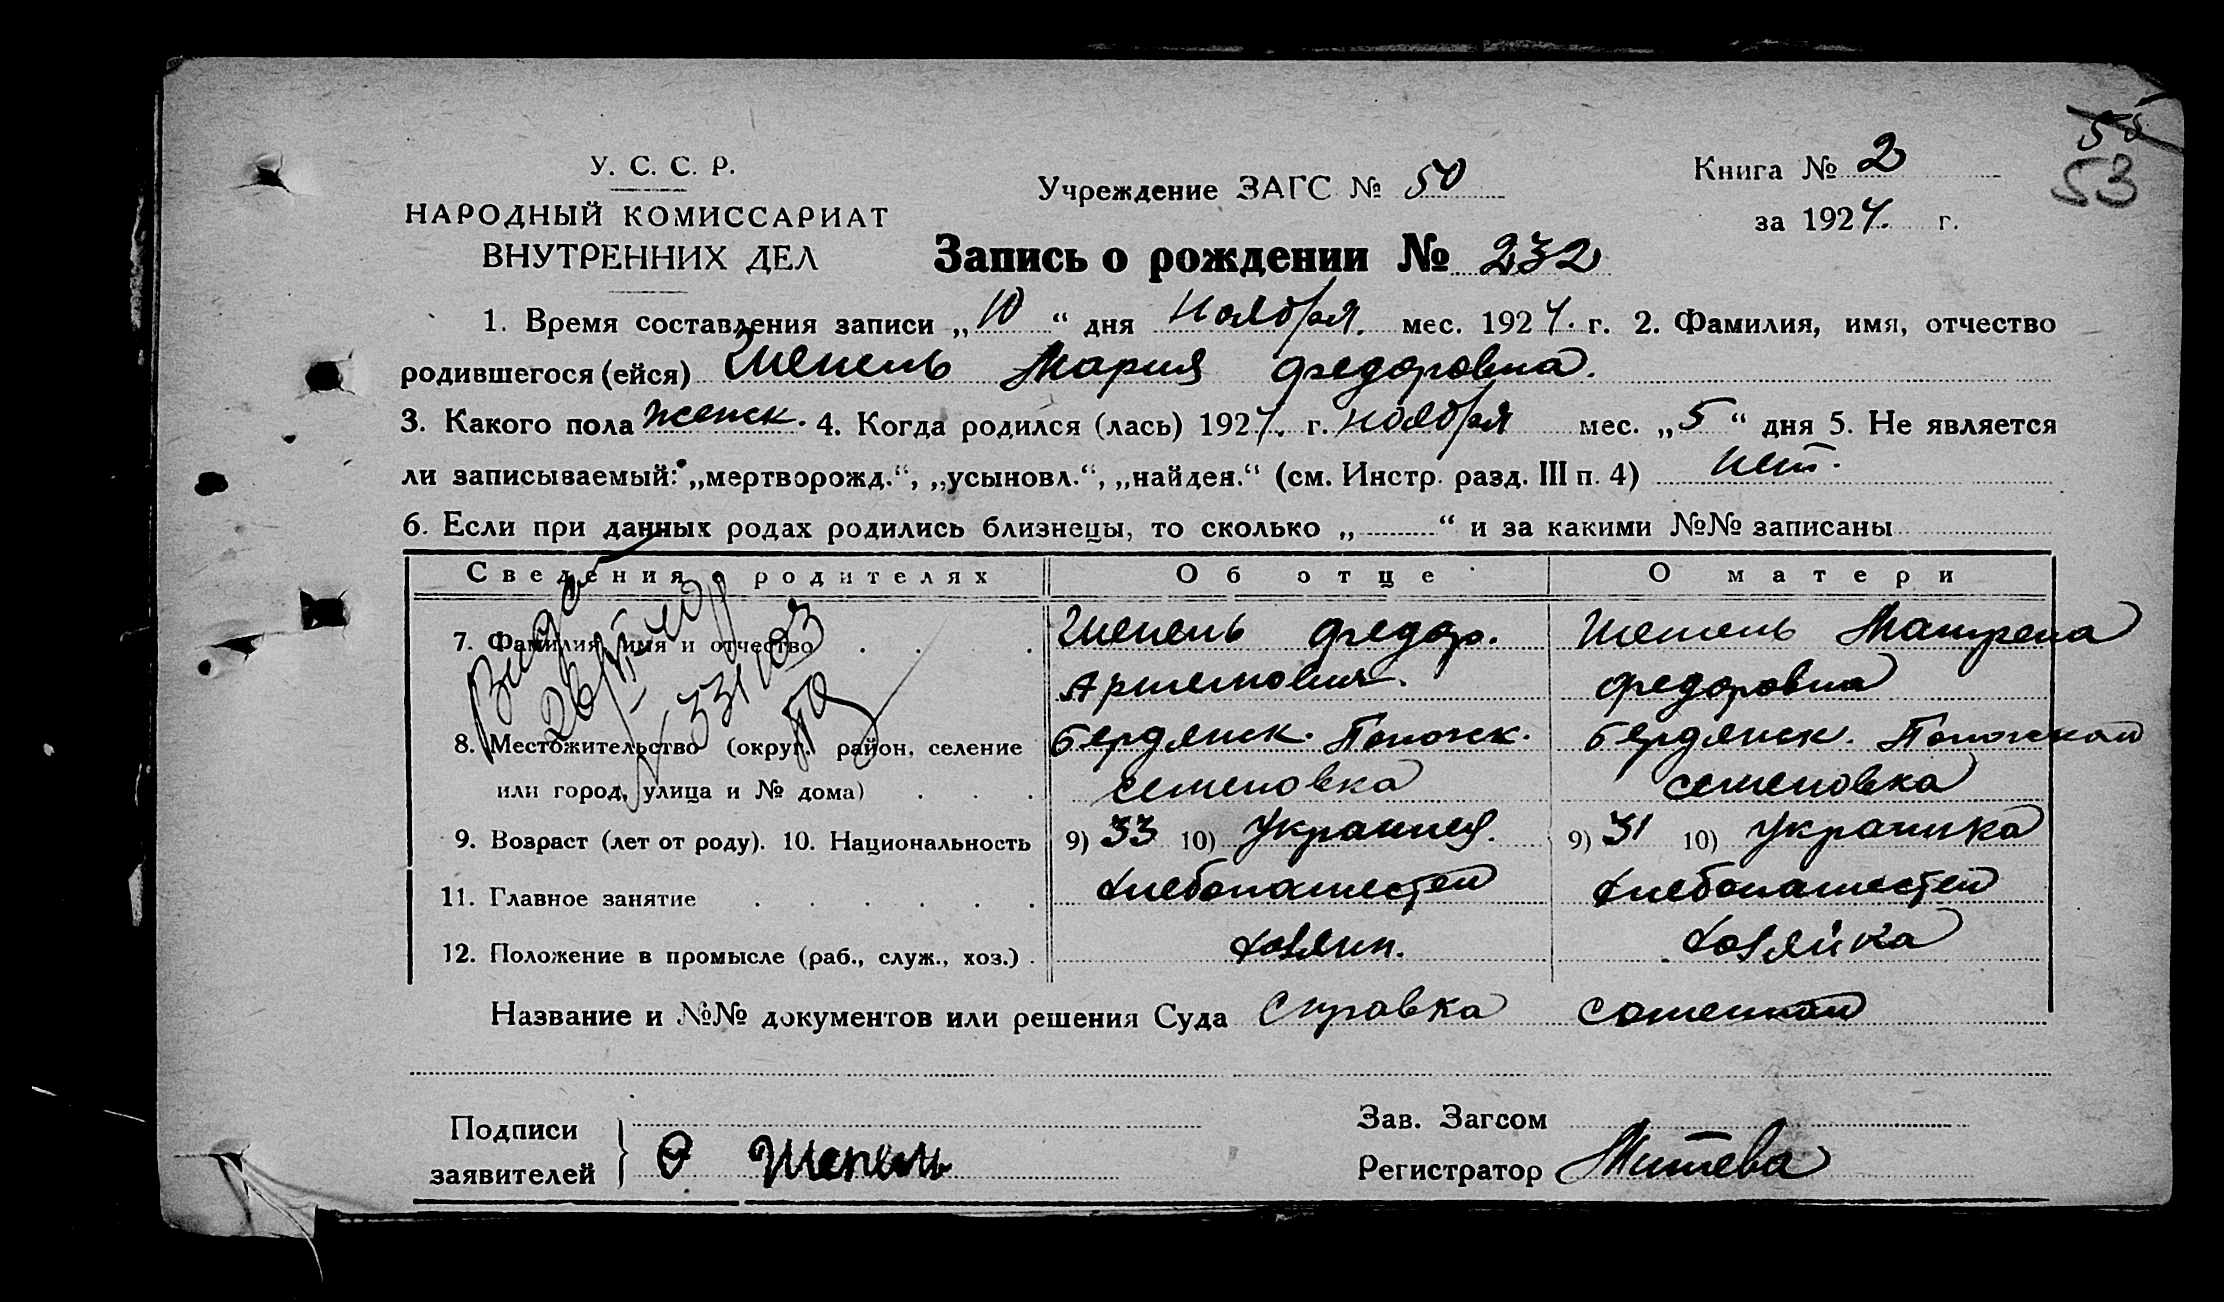 55
53
У. С. С. Р.
НАРОДНЫЙ КОМИССАРИАТ
ВНУТРЕННИХ ДЕЛ
Учреждение ЗАГС № 50
Книга № 2
за 1924. г.
Запись о рождении № 232
1. Время составления записи „10“ дня Ноября. мес. 1924. г. 2. Фамилия, имя, отчество
родившегося (ейся) Шепель Мария Федоровна.
3. Какого пола женск. 4. Когда родился (лась) 1924. г. ноября мес. „5“ дня 5. Не является
ли записываемый: „мертворожд.“, „усыновл.“, „найден.“ (см. Инстр. разд. III п. 4) нет.
6. Если при данных родах родились близнецы, то сколько „ “ и за какими №№ записаны
Сведения о родителях Об отце О матери
7. Фамилия, имя и отчество Шепель Федор. Шепель Матрена
Артемович. Федоровна
8. Местожительство (округ, район, селение Бердянск. Пологск. Бердянск. Пологский
или город, улица и № дома) Семеновка Семеновка
9. Возраст (лет от роду). 10. Национальность 9) 33 10) Украинец. 9) 31 10) Украинка
11. Главное занятие Хлебопашество Хлебопашество
12. Положение в промысле (раб., служ., хоз.) Хозяин. Хозяйка
Название и №№ документов или решения Суда Справка
Подписи
заявителей Ф Шепель
Зав. Загсом
Регистратор